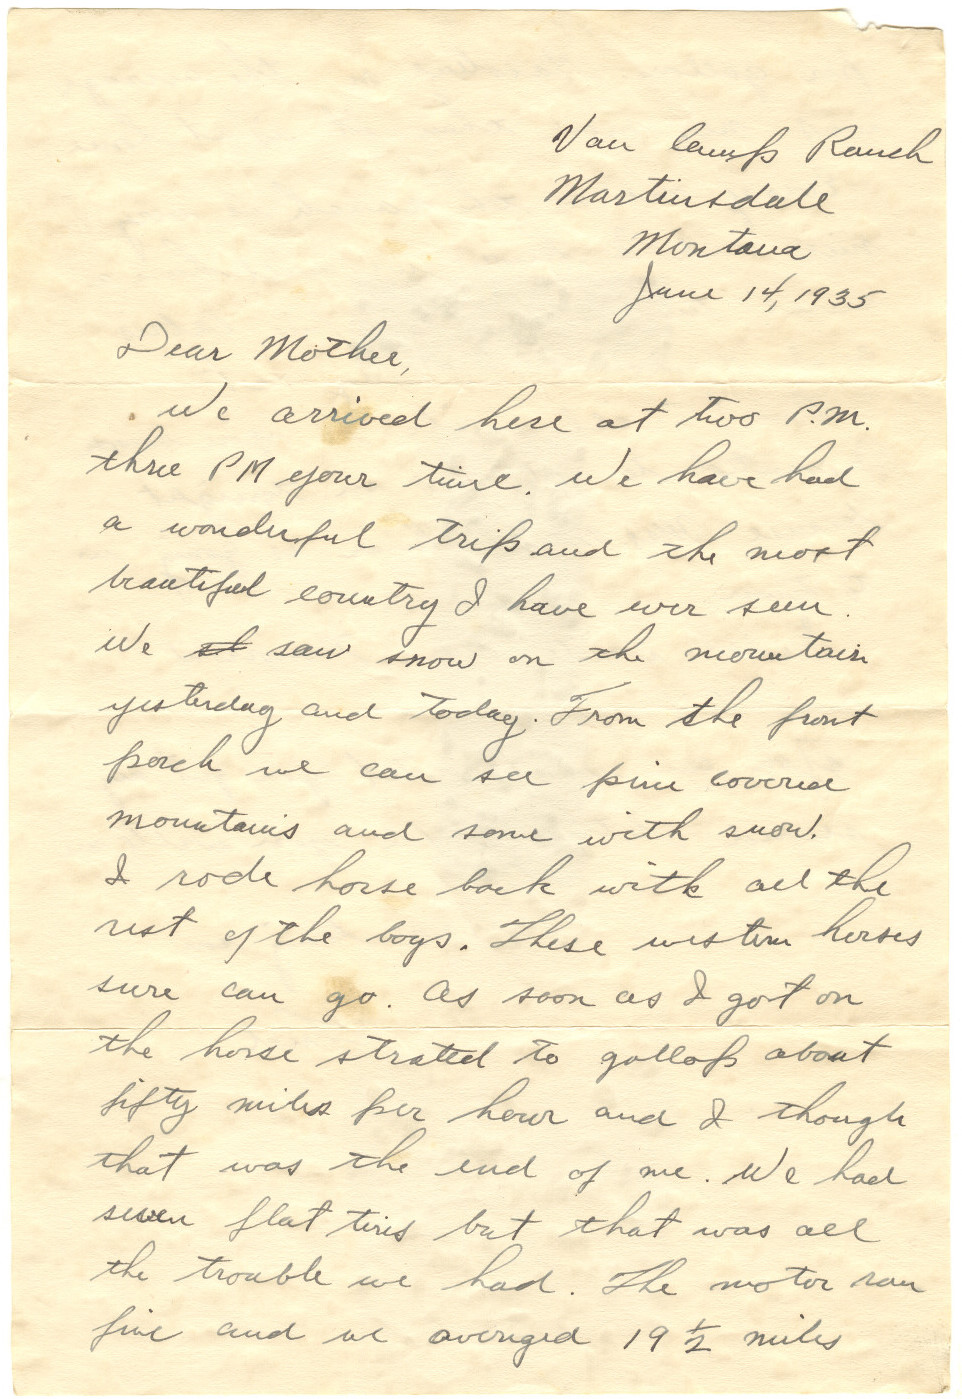 Van Camp Ranch
Martinsdale
Montana
June 14, 1935
Dear Mother,
We arrived here at two P.M.
three PM your time. We have had
a wonderful trip and the most
beautiful country I have ever seen.
We st saw snow on the mountain
yesterday and today. From the front
porch we can see pine covered
mountains and some with snow.
I rode horse back with all the
rest of the boys. These western horses
sure can go. As soon as I got on
the horse strated to gallop about
fifty miles per hour and I though
that was the end of me. We had
seven flat tires but that was all
the trouble we had. The motor ran
fine and we averaged 19 1/2 miles